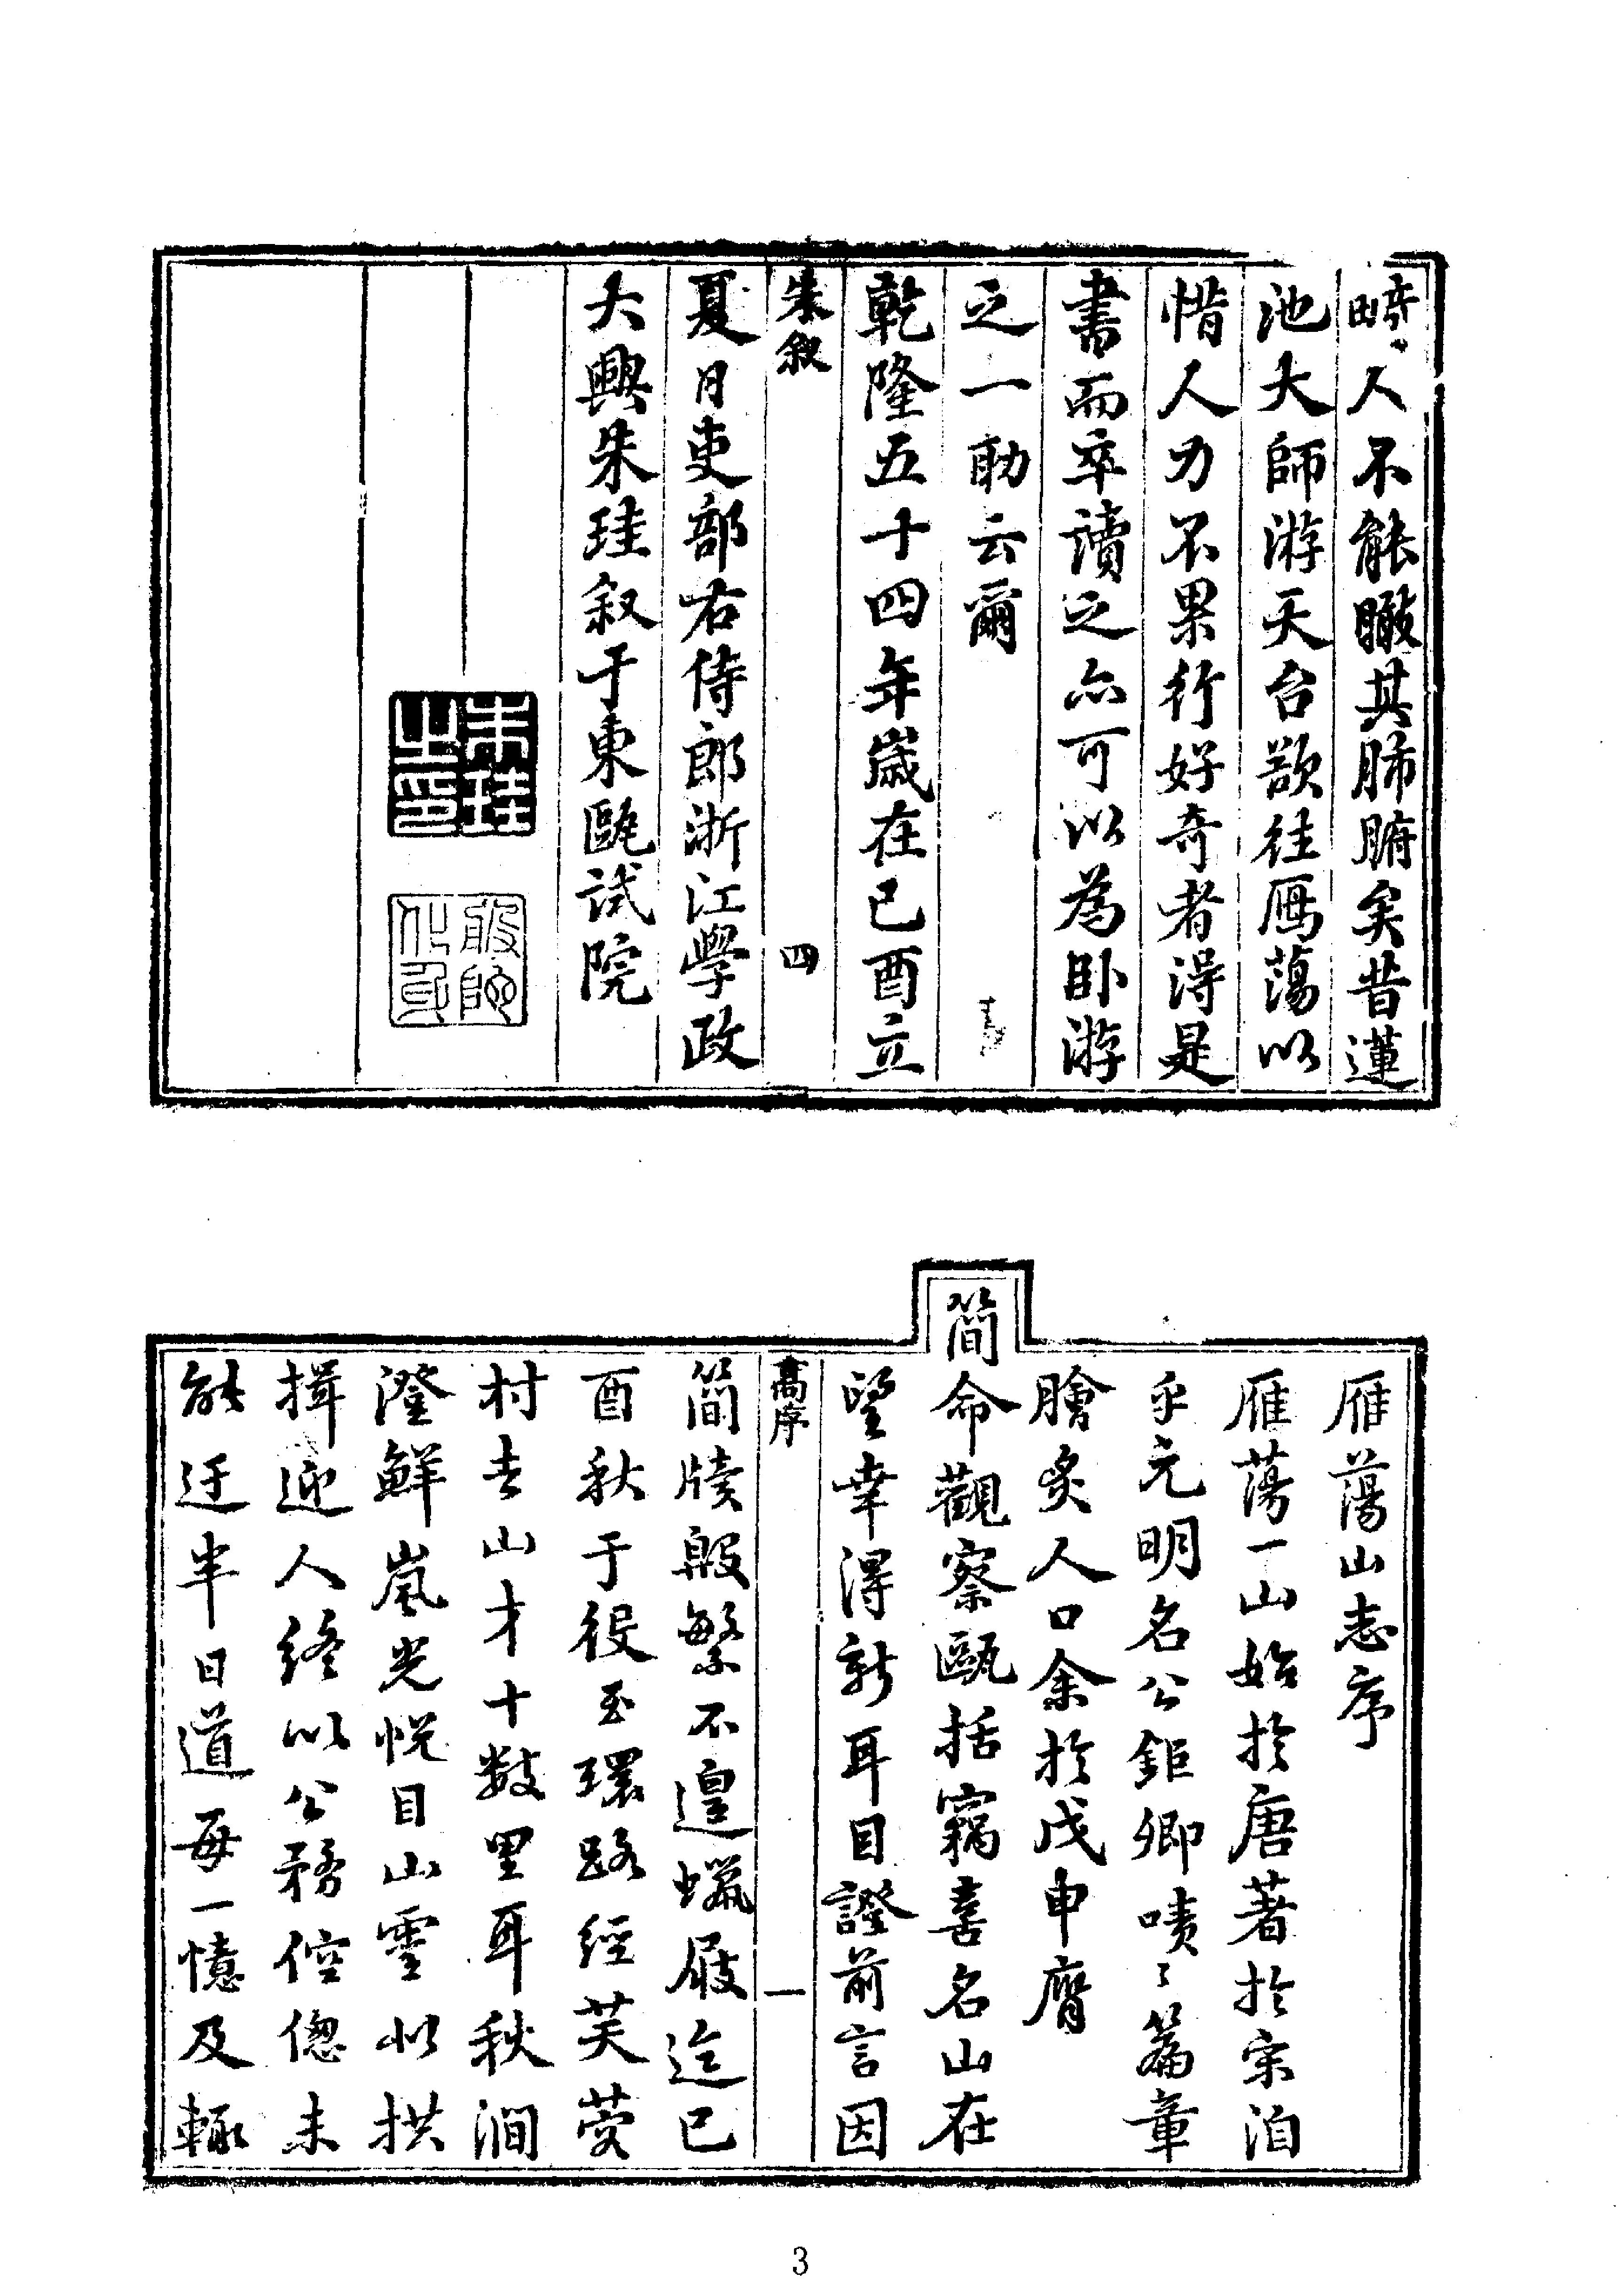 畸人不能瞰其肺腑矣昔蓮
池大師游天台欲往雁蕩以
惜人力不果行好奇者得是
書而卒讀之亦可以為臥游
之一助云爾
乾隆五十四年歲在己酉立
朱叙
四
夏日吏部右侍郎浙江學政
大興朱珪叙于東甌試院
朱珪之印
雁蕩山志序
雁蕩一山始於唐著於宋洎
乎元明名公鉅卿嘖〻篇章
膾炙人口余於戊申膺
簡命觀察甌括竊喜名山在
望幸得新耳目證前言因
高序
一
簡牘殷繁不遑蠟屐迨己
酉秋于役玉環路經芙蓉
村去山才十數里耳秋澗
澄鮮嵐光悅目山靈似拱
揖迎人終以公務倥傯未
能迂半日道每一憶及輒
3